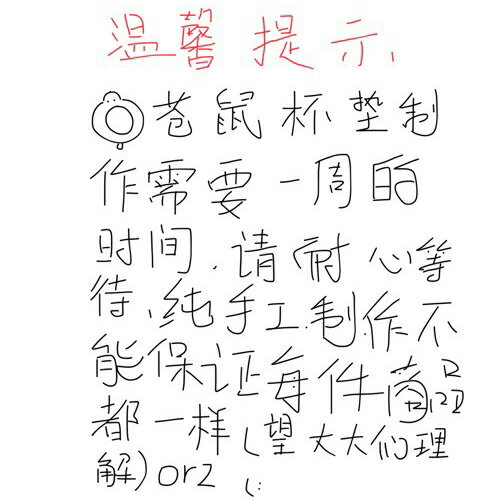 温馨提示
苍鼠杯垫制
作需要一周的
时间.请耐心等
待、纯手工制作不
能保证每件商品
都一样(望大大们理
解)orz (: